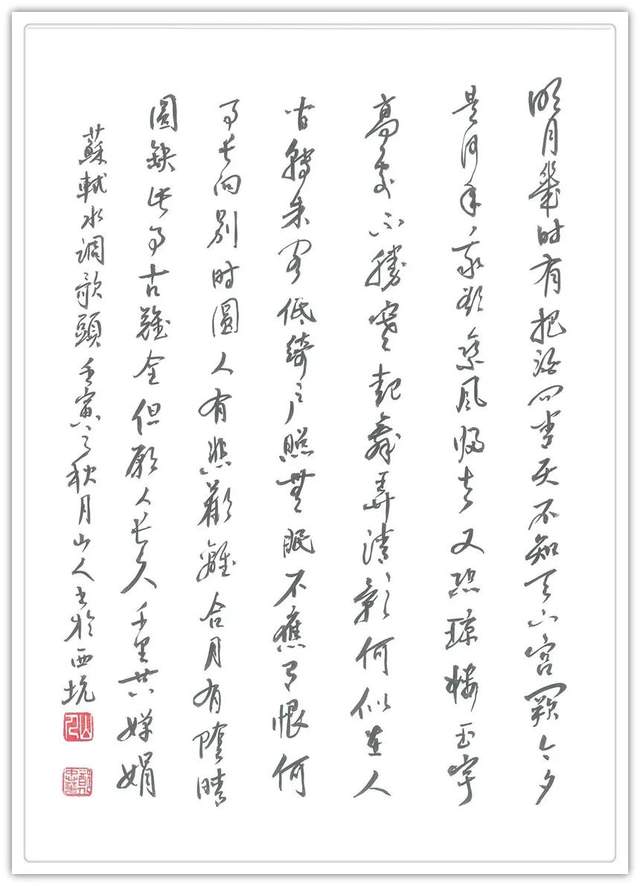 明月幾时有把酒问青天不知天上宫阙今夕
是何年我欲乘风归去又恐琼楼玉宇
高处不勝寒起舞弄清影何似在人
间轉朱阁低綺户照無眠不應有恨何
事长向别时圓人有悲歡離合月有陰晴
圓缺此事古難全但願人长久千里共婵娟
蘇軾水调歌頭壬寅之秋月山人书於西坑
山人